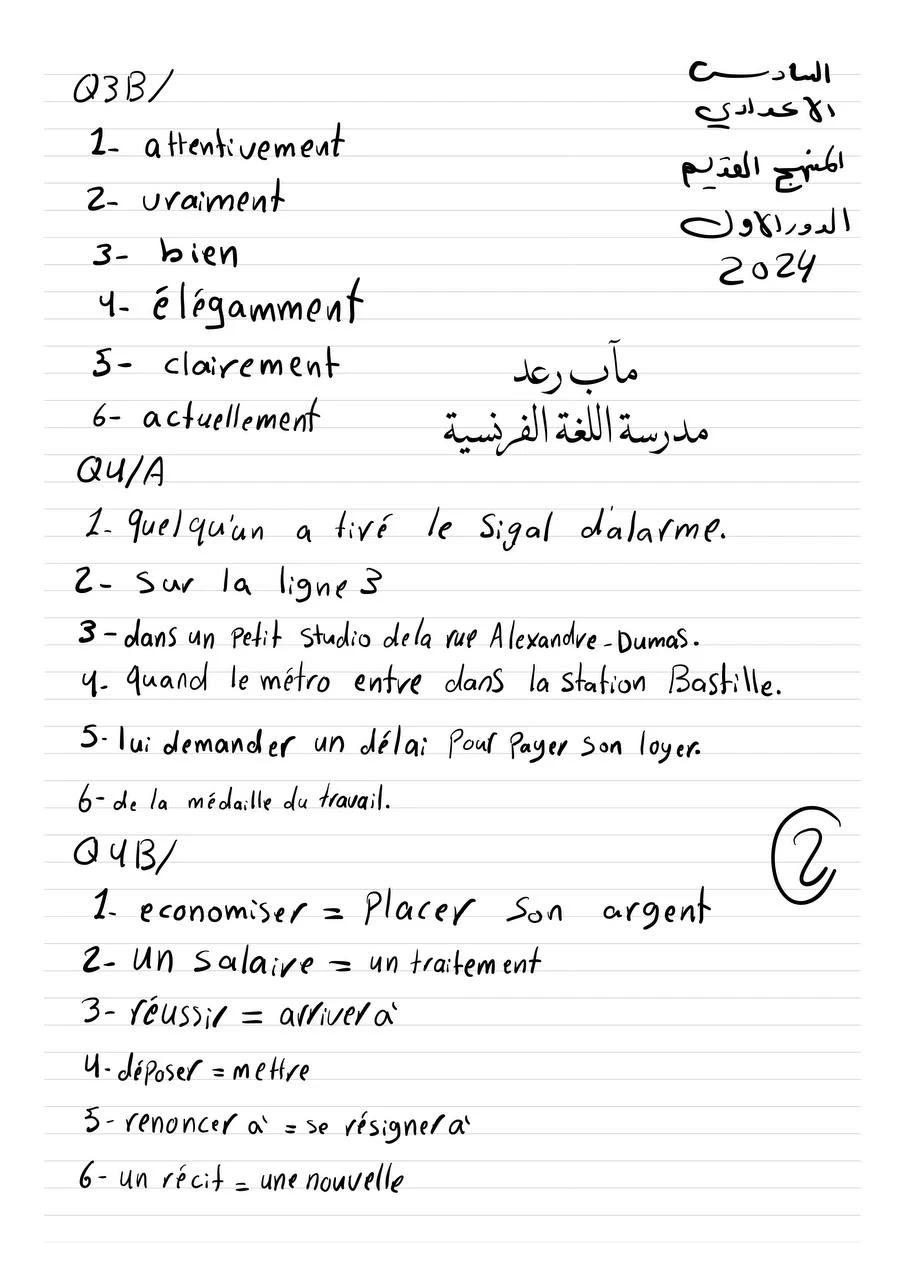 Q3B/
السادس
الاعدادي
1- attentivement
المنهج القديم
2- vraiment
الدور الاول
3- bien
2024
4- élégamment
5- clairement
مآب رعد
6- actuellement
مدرسة اللغة الفرنسية
Q4/A
1- quelqu'un a tiré le sigal d'alarme.
2- sur la ligne 3
3- dans un petit studio de la rue Alexandre-Dumas.
4- quand le métro entre dans la station Bastille.
5- lui demander un délai pour payer son loyer.
6- de la médaille du travail.
Q4B/
2
1- economiser = placer son argent
2- un salaire = un traitement
3- réussir = arriver à
4- déposer = mettre
5- renoncer à = se résigner à
6- un récit = une nouvelle